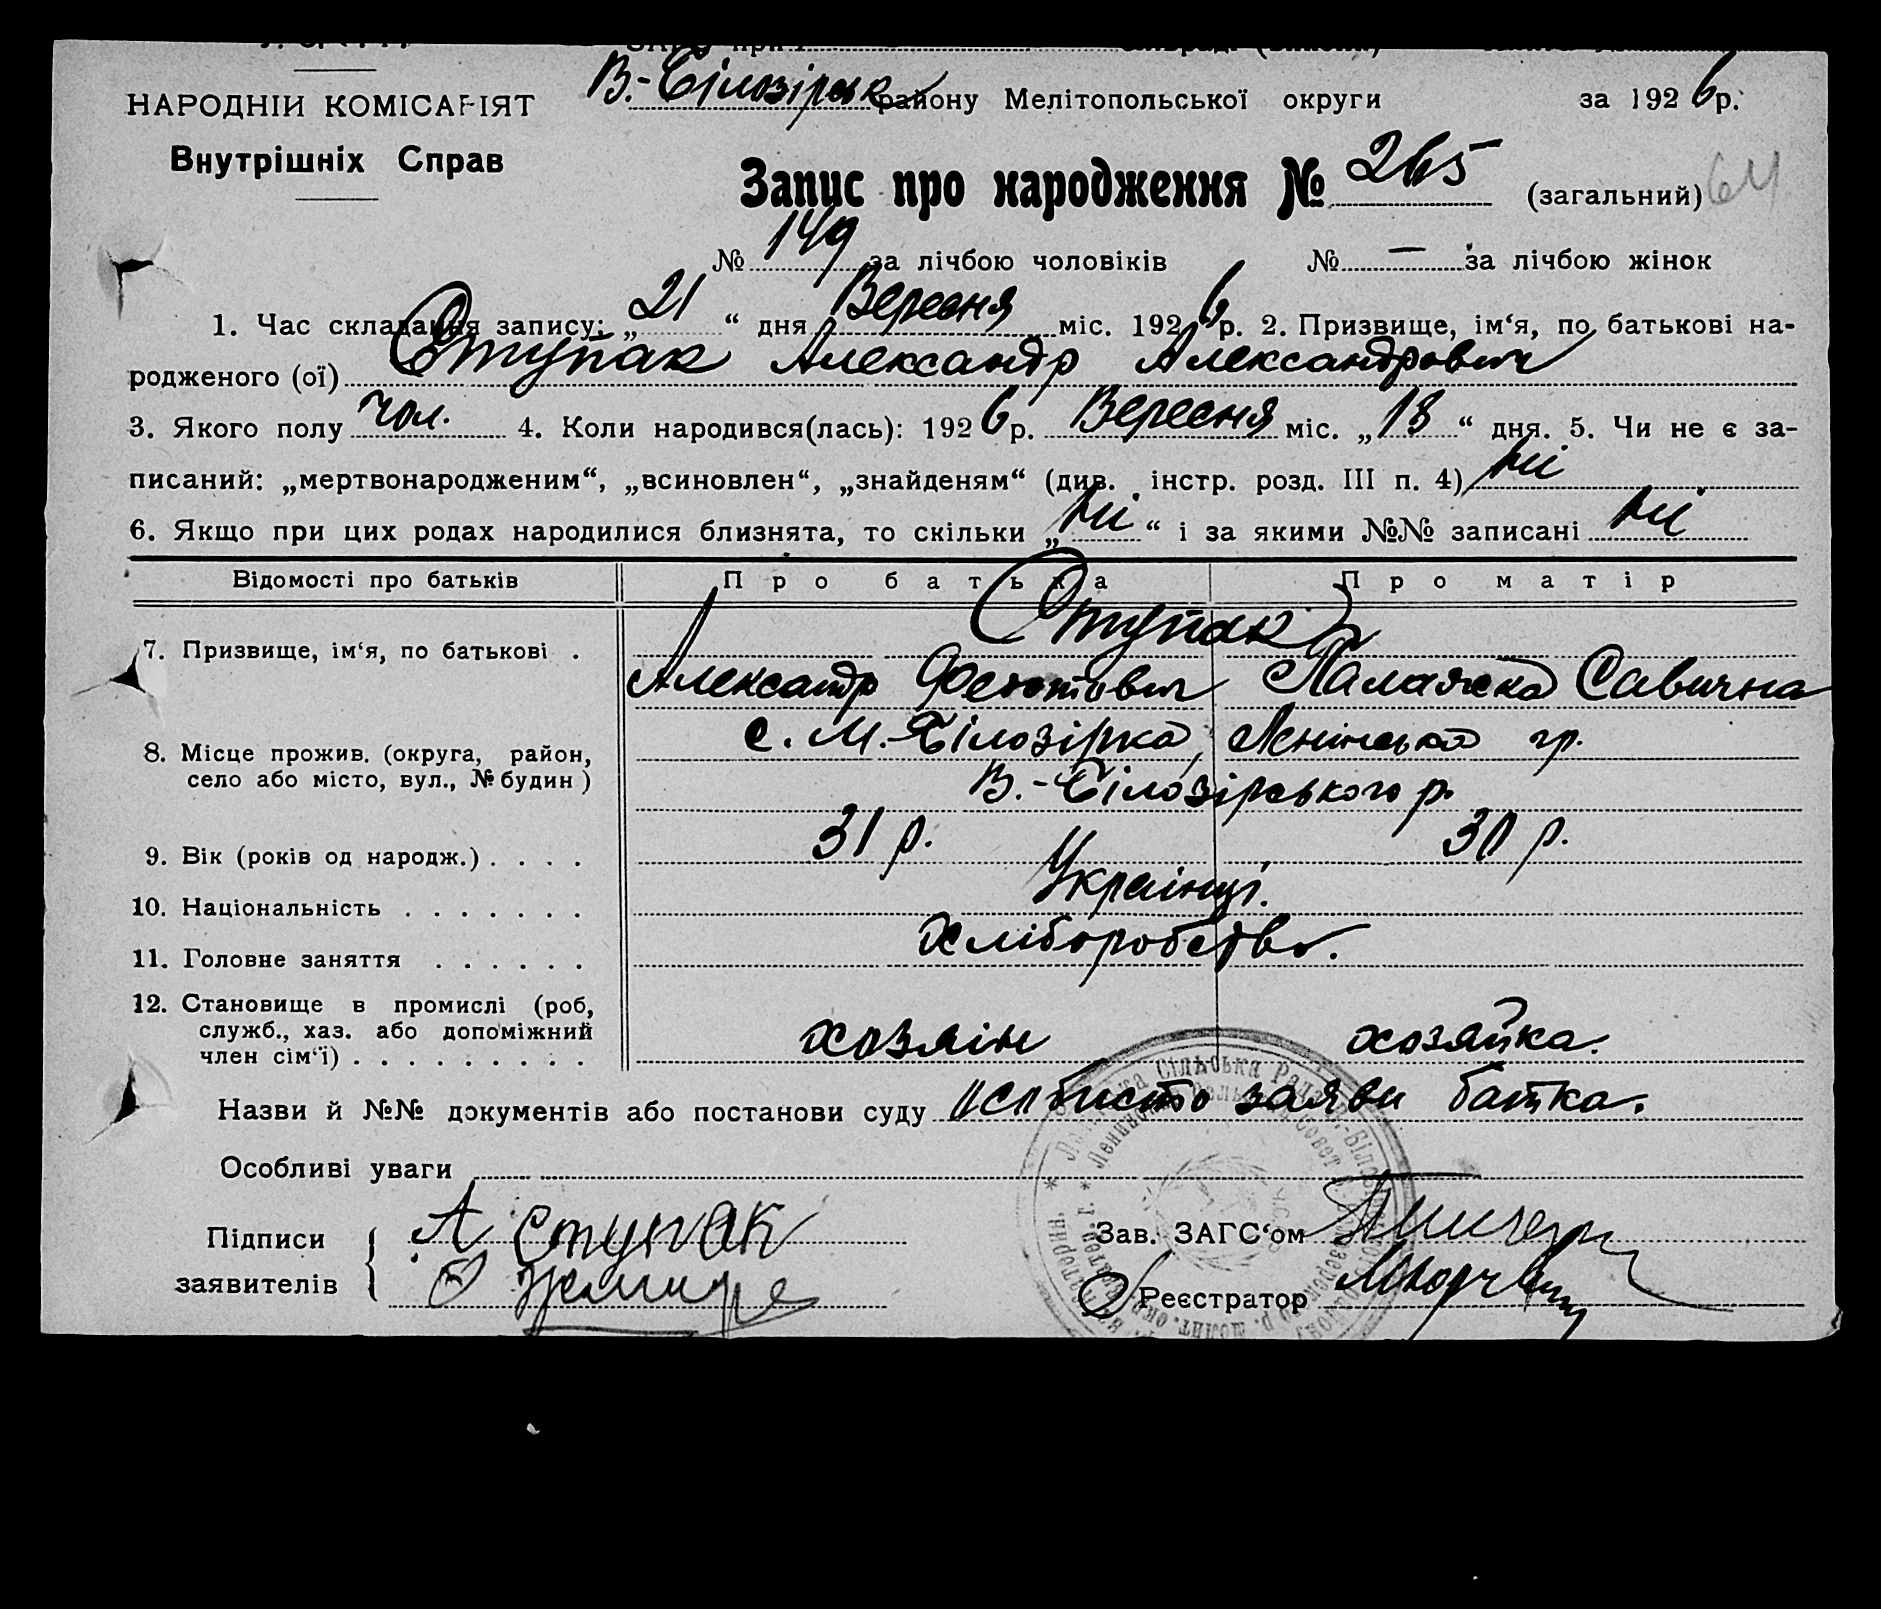 В.-Білозірськ району Мелітопольської округи за 1926р.
НАРОДНІЙ КОМІСАРІЯТ
Внутрішніх Справ
Запис про народження № 265 (загальний) 64
№ 149 за лічбою чоловіків № — за лічбою жінок
1. Час складання запису: „21“ дня Вересня міс. 1926р. 2. Призвище, ім‘я, по батькові на-
родженого (ої) Ступак Александр Александрович
3. Якого полу чол. 4. Коли народився(лась): 1926р. Вересня міс. „18“ дня. 5. Чи не є за-
писаний: „мертвонародженим“, „всиновлен“, „знайденям“ (див. інстр. розд. III п. 4) ні
6. Якщо при цих родах народилися близнята, то скільки „ні“ і за якими №№ записані ні
Відомості про батьків Про батька Про матір
7. Призвище, ім‘я, по батькові . Ступак
Александр Феотович Палажка Савична
8. Місце прожив. (округа, район, с. М.-Білозірка, Ленінської гр.
село або місто, вул., № будин) В.-Білозірського р.
9. Вік (років од народж.) . . . . 31 р. 30 р.
10. Національність . . . . . . . Українці.
11. Головне заняття . . . . . . Хліборобство.
12. Становище в промислі (роб,
служб., хаз. або допоміжний
член сім‘ї) . . . . . . . . . хозяін хозяйка.
Назви й №№ документів або постанови суду особисто заяви батка.
Особливі уваги
Підписи А Ступак Зав. ЗАГС‘ом
заявителів Реєстратор